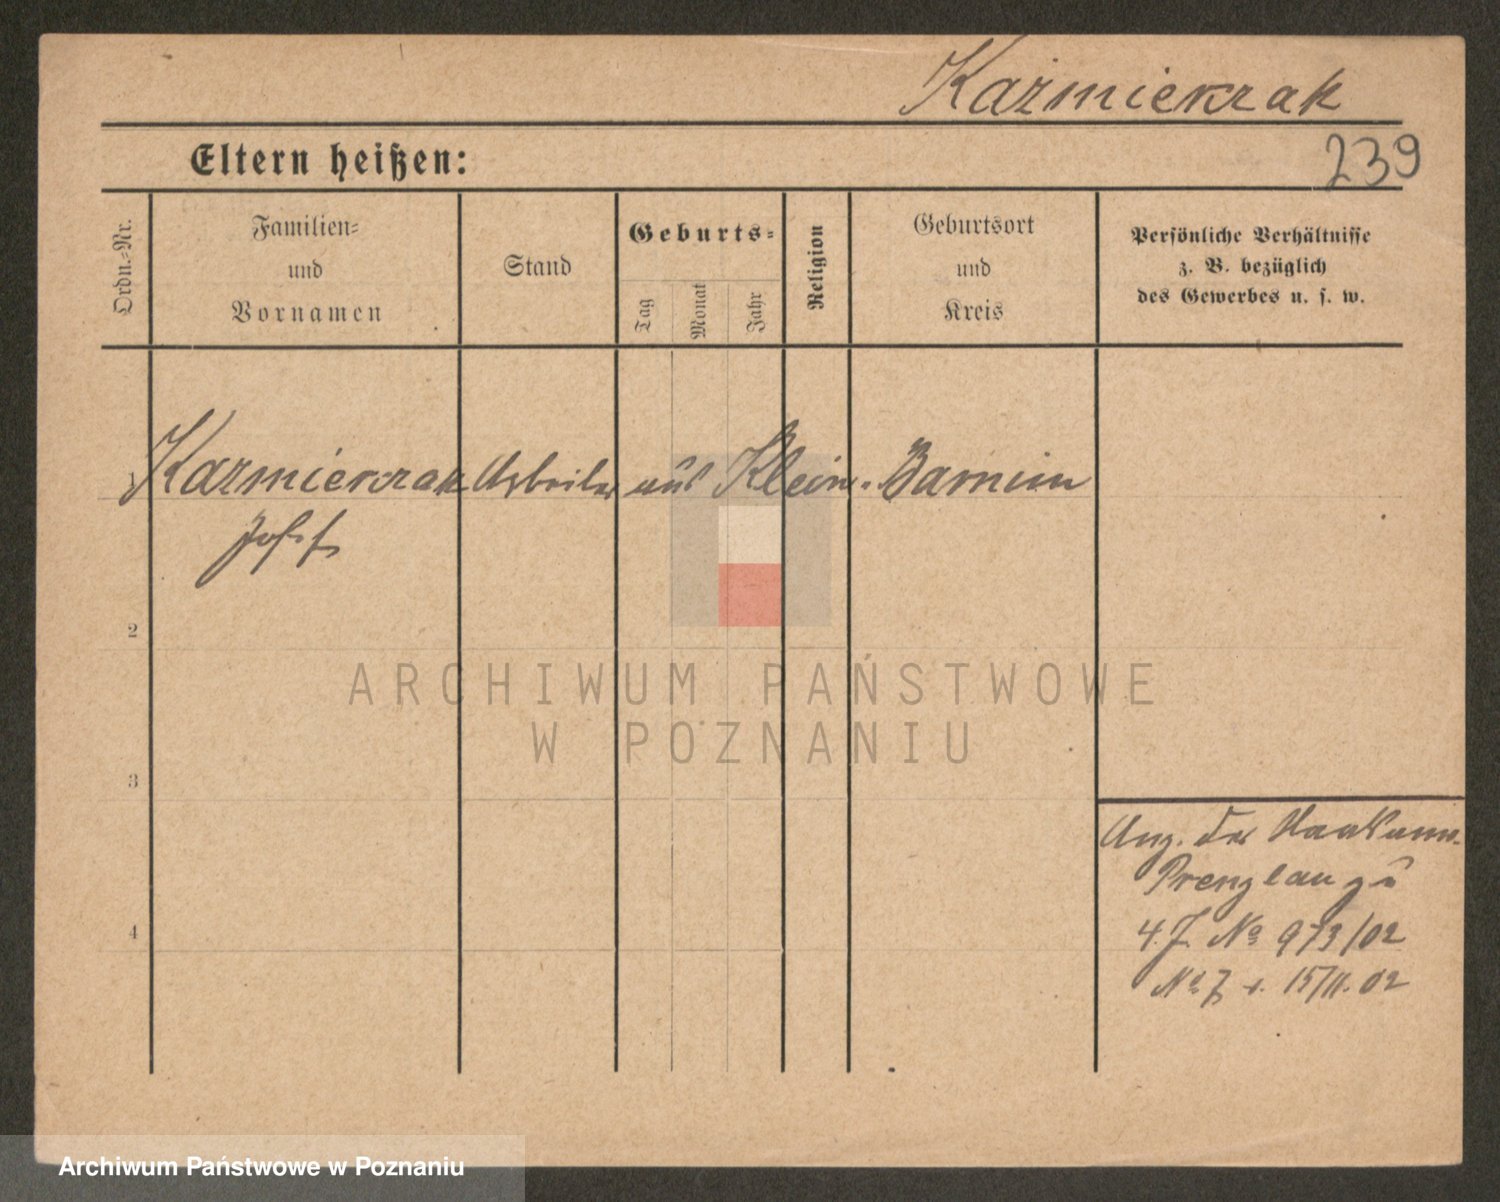 Kaźmierzak
239
Eltern heißen:
Ordn.-Nr.
Familien-
und
Vornamen
Stand
Geburts-
Tag
Monat
Jahr
Religion
Geburtsort
und
Kreis
Persönliche Verhältnisse
z. B. bezüglich
des Gewerbes u. s. w.
1 Kazmierzak Arbeiter aus Klein-Barnim
Josef
2
3
4
Anz. der
Prenzlau zu
4. J. No 973/02
No 7 v. 15/11. 02
ARCHIWUM PAŃSTWOWE
W POZNANIU
Archiwum Państwowe w Poznaniu